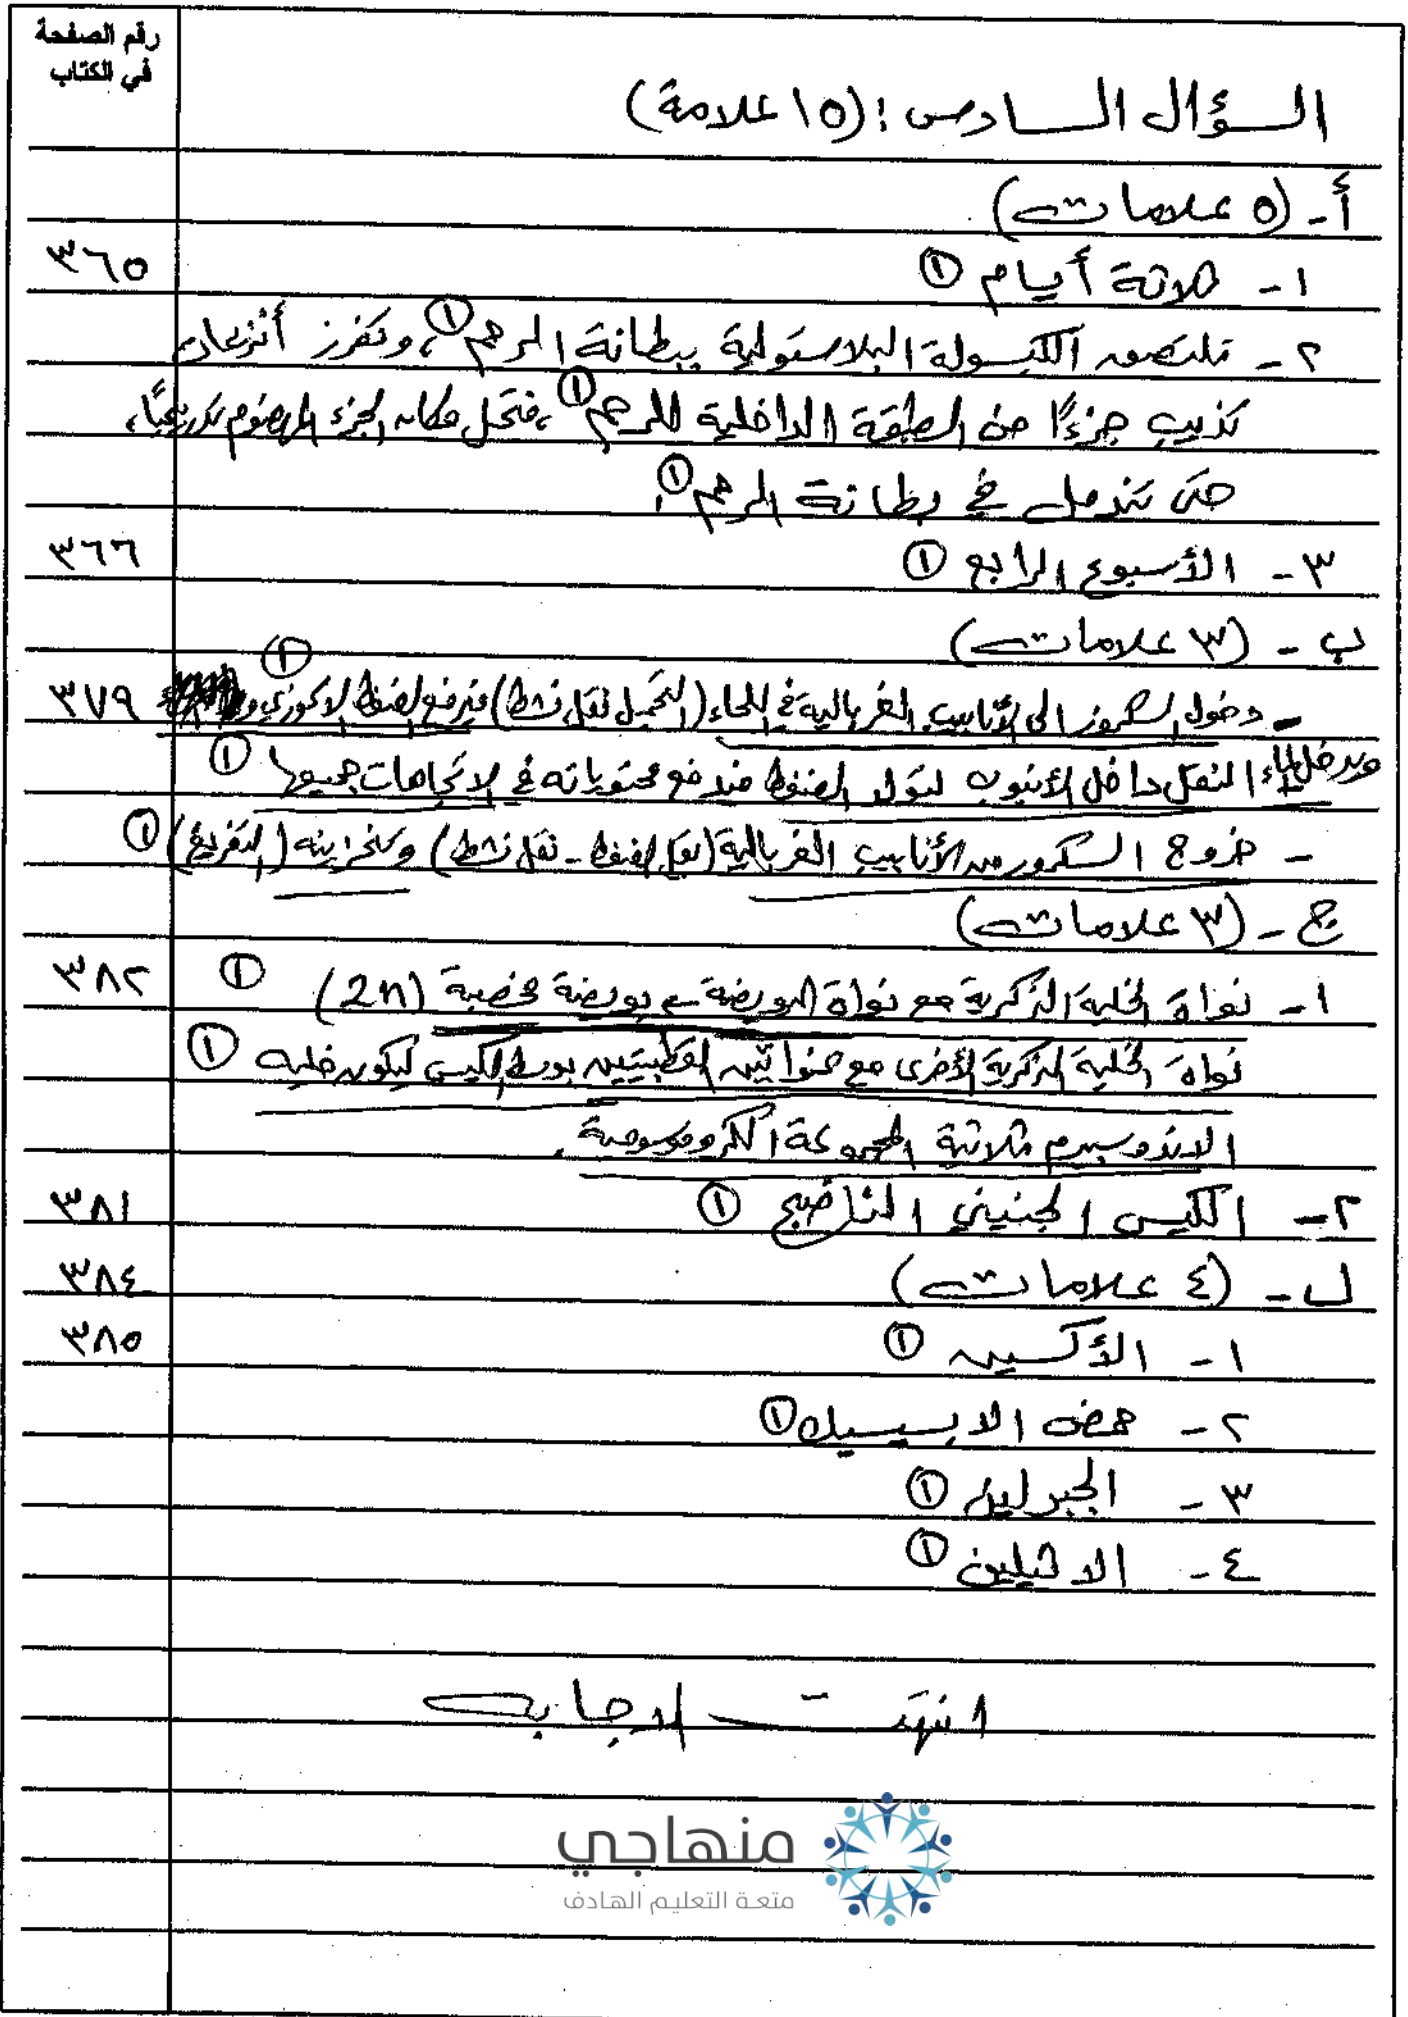 رقم الصفحة
في الكتاب
السؤال السادس : (١٥ علامة)
أ - (٥ علامات)
١ - ثلاثة أيام ① ٣٦٥
٢ - تلتصق الكبسولة البلاستولية ببطانة الرحم ①، وتفرز أنزيمات
تذيب جزءًا من الطبقة الداخلية للرحم ①، فتحل مكان الجزء المهضوم تدريجيًا،
حتى تنزمل في بطانة الرحم ①.
٣ - الأسبوع الرابع ① ٣٦٦
ب - (٣ علامات)
- دخول السكروز الى الأنابيب الغربالية في اللحاء (التحميل نقل نشط) فيرتفع الضغط الاسموزي ① ٣٧٩
ويدخل الماء النقل داخل الأنبوب لتولد الضغط فتدفع محتوياته في الاتجاهات جميعها ①
- خروج السكروز من الأنابيب الغربالية (نقل الضغط - نقل نشط) وتخزينه (التفريغ) ①
ج - (٣ علامات)
١ - نواة الخلية الذكرية مع نواة البويضة ← بويضة مخصبة (2n) ① ٣٨٢
نواة الخلية الذكرية الأخرى مع النواتين القطبيتين بوسط الكيس ليكون خلية ①
الاندوسبيرم ثلاثية المجموعة الكروموسومية.
٢ - الكيس الجنيني الناضج ① ٣٨١
ل - (٤ علامات) ٣٨٤
١ - الأكسين ① ٣٨٥
٢ - حمض الابسيسيك ①
٣ - الجبرلين ①
٤ - الاثيلين ①
انتهت الاجابة
منهاجي
متعة التعليم الهادف